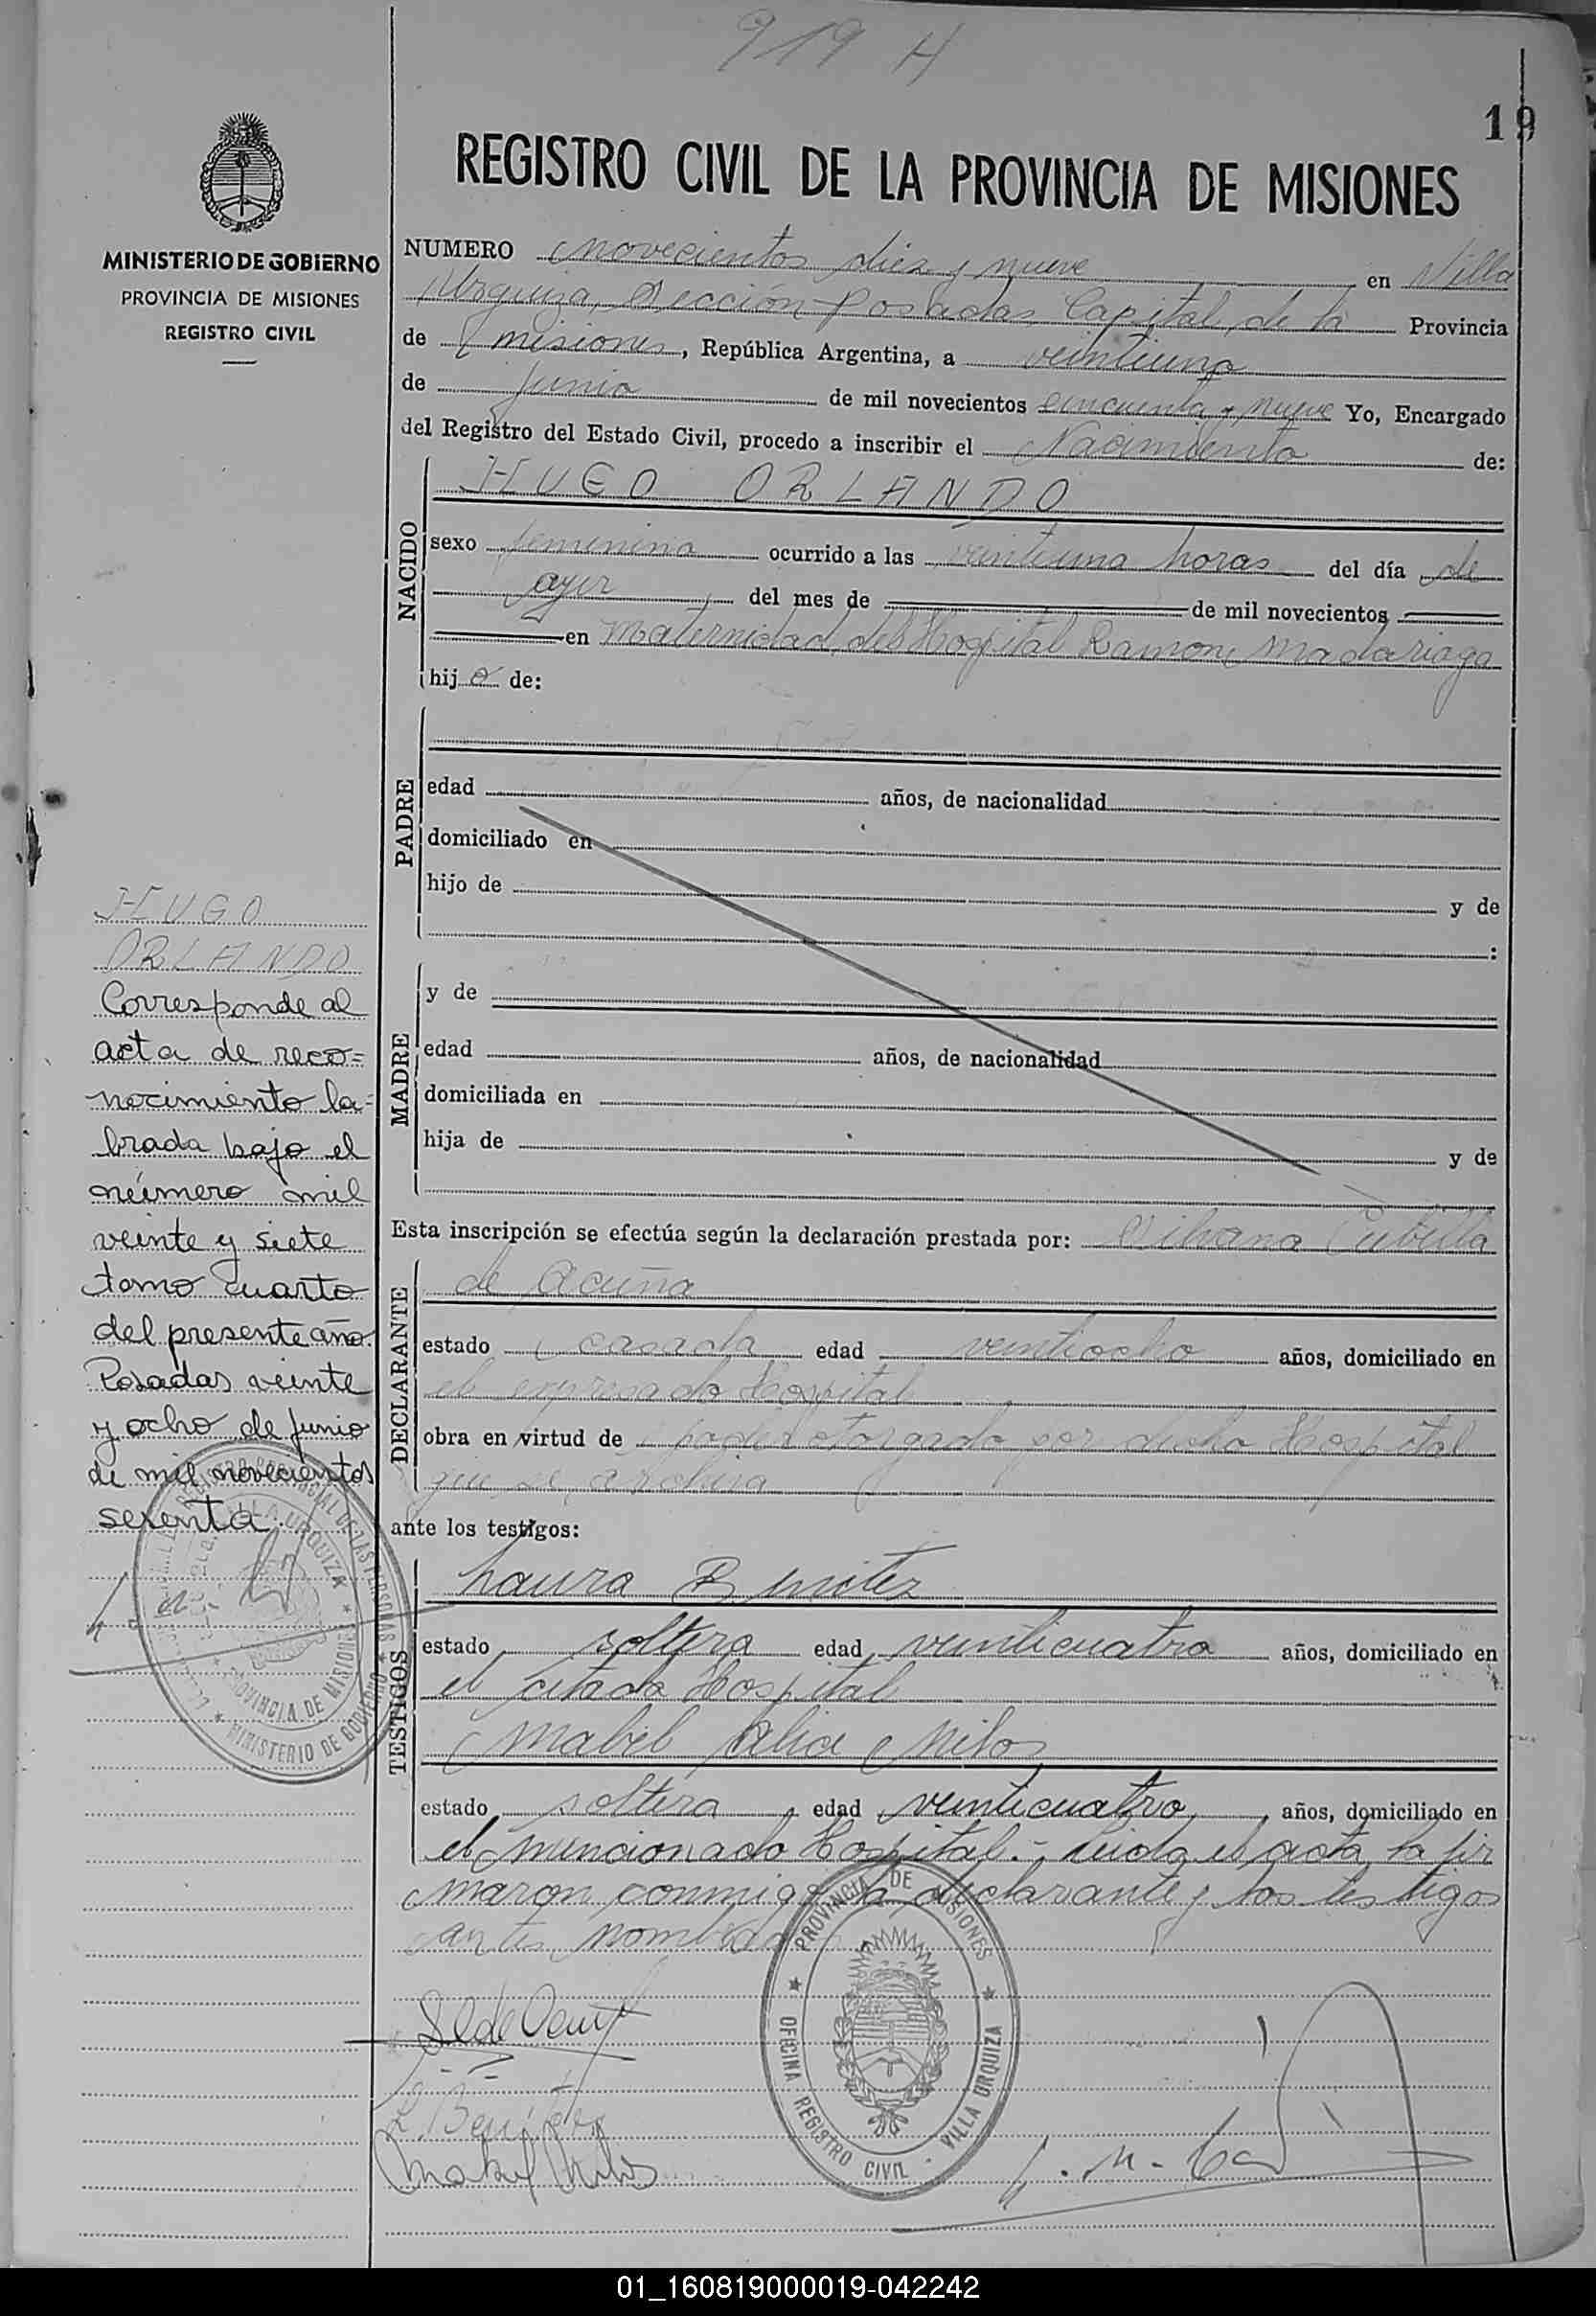 919 H
19
REGISTRO CIVIL DE LA PROVINCIA DE MISIONES
MINISTERIO DE GOBIERNO
PROVINCIA DE MISIONES
REGISTRO CIVIL
NUMERO novecientos diez y nueve en Villa
Urquiza, Sección Posadas, Capital, de la Provincia
de misiones, República Argentina, a veintiuno
de junio de mil novecientos cincuenta y nueve Yo, Encargado
del Registro del Estado Civil, procedo a inscribir el Nacimiento de:
NACIDO
HUGO ORLANDO
sexo femenino ocurrido a las veintiuna horas del día de
ayer, del mes de de mil novecientos
en Maternidad del Hospital Ramon Madariaga
hijo de:
PADRE
edad años, de nacionalidad
domiciliado en
hijo de y de
:
MADRE
y de
edad años, de nacionalidad
domiciliada en
hija de y de
Esta inscripción se efectúa según la declaración prestada por: Silvana Cubilla
DECLARANTE
de Acuña
estado casada edad veintiocho años, domiciliado en
el expresado Hospital
obra en virtud de poder otorgado por dicho Hospital
que se archiva
ante los testigos:
TESTIGOS
Laura Benitez
estado soltera edad veinticuatro años, domiciliado en
el citado Hospital
Mabel Alicia
estado soltera, edad veinticuatro, años, domiciliado en
el mencionado Hospital.- Leida el acta, la fir
maron conmigo la declarante y los testigos
antes nombrados
HUGO
ORLANDO
Corresponde al
acta de reco=
nocimiento la=
brada bajo el
número mil
veinte y siete
tomo cuarto
del presente año.
Posadas veinte
y ocho de junio
de mil novecientos
sesenta.
VILLA URQUIZA
PROVINCIA DE MISIONES
MINISTERIO DE GOBIERNO
L. Benítez
PROVINCIA DE MISIONES
OFICINA REGISTRO CIVIL - VILLA URQUIZA
01_160819000019-042242